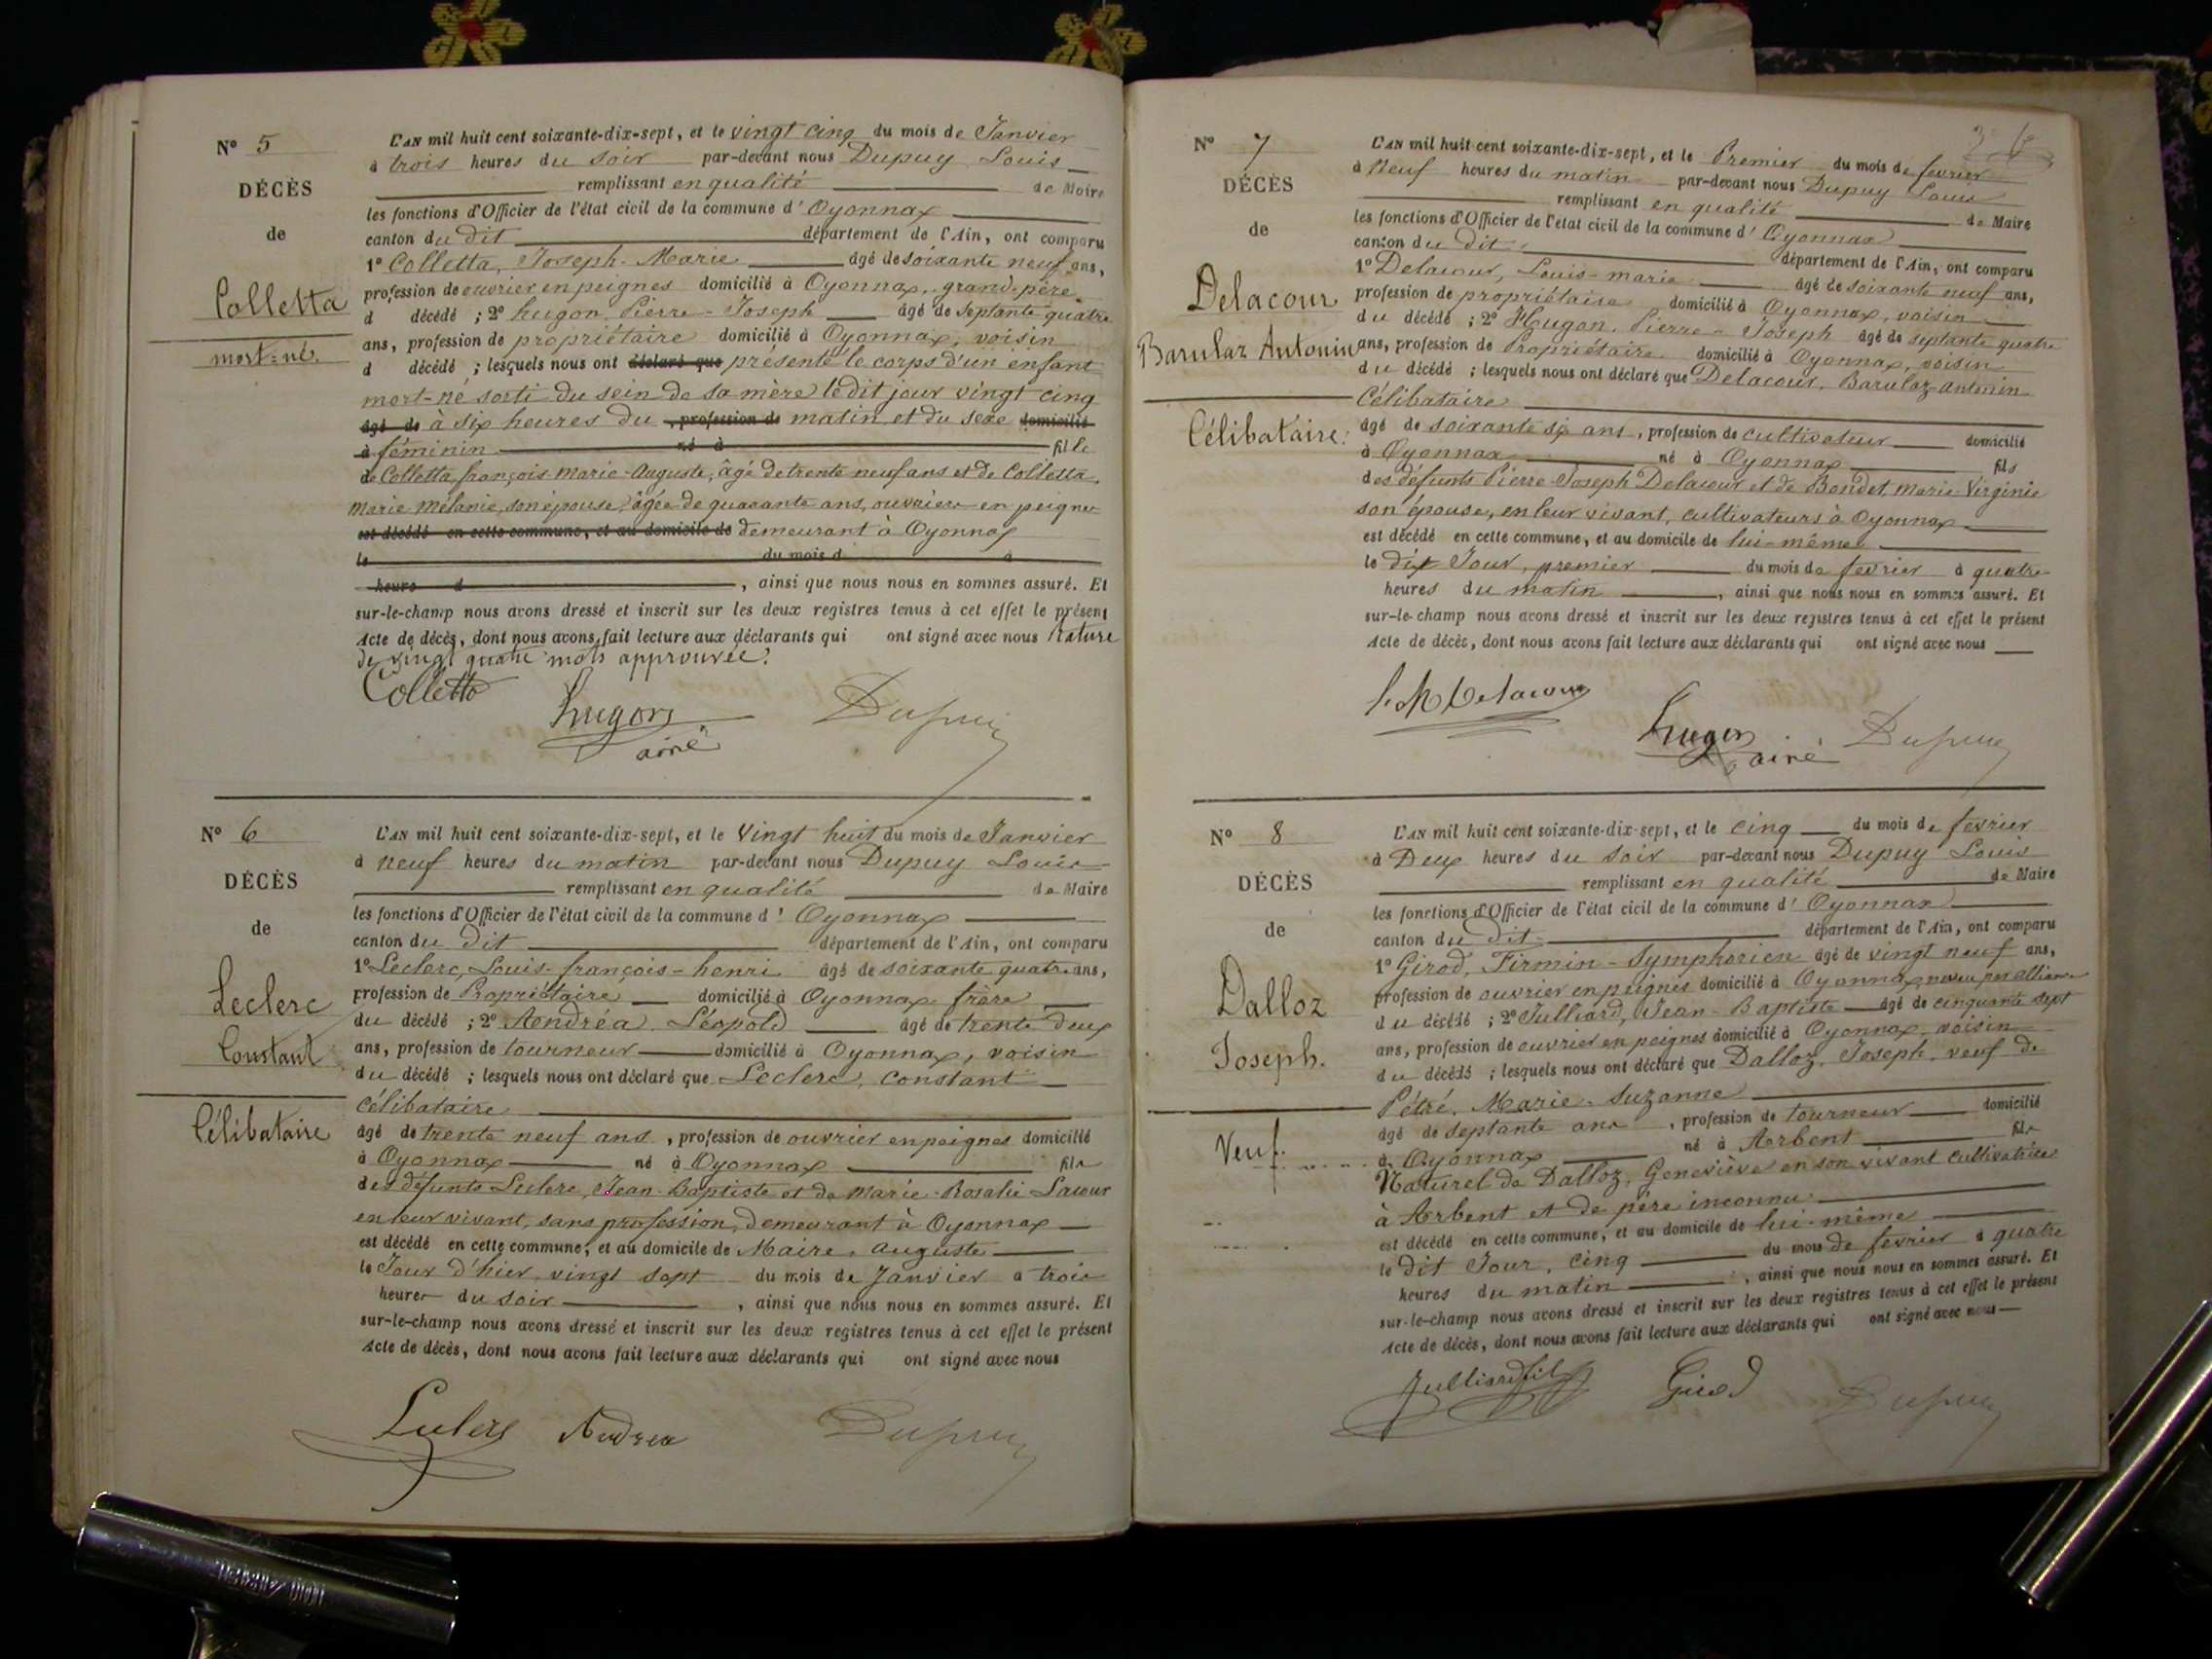 Nº 5
DÉCÈS
de
Colletta
mort-né.
L'AN mil huit cent soixante-dix-sept, et le vingt cinq du mois de Janvier
à trois heures du soir par-devant nous Dupuy Louis
remplissant en qualité de Maire
les fonctions d'Officier de l'état civil de la commune d' Oyonnax
canton du dit département de l'Ain, ont comparu
1º Colletta, Joseph-Marie âgé de soixante neuf ans,
profession de ouvrier en peignes domicilié à Oyonnax, grand-père
d décédé ; 2º hugon, Pierre-Joseph âgé de septante quatre
ans, profession de propriétaire domicilié à Oyonnax, voisin
d décédé ; lesquels nous ont déclaré que présenté le corps d'un enfant
mort-né sorti du sein de sa mère le dit jour vingt cinq
âgé de à six heures du , profession de matin et du sexe domicilié
à féminin né à fille
de Colletta, françois Marie-Auguste, âgé de trente neuf ans et de Colletta,
Marie Mélanie, son épouse, âgée de quarante ans, ouvriers en peignes
est décédé en cette commune, et au domicile de demeurant à Oyonnax
le du mois d à
heure d , ainsi que nous nous en sommes assuré. Et
sur-le-champ nous avons dressé et inscrit sur les deux registres tenus à cet effet le présent
Acte de décès, dont nous avons fait lecture aux déclarants qui ont signé avec nous Rature
de vingt quatre mots approuvée.
Colletta
hugon
ainé
Dupuy
Nº 6
DÉCÈS
de
Leclerc
Constant
Célibataire
L'AN mil huit cent soixante-dix-sept, et le Vingt huit du mois de Janvier
à neuf heures du matin par-devant nous Dupuy Louis
remplissant en qualité de Maire
les fonctions d'Officier de l'état civil de la commune d' Oyonnax
canton du dit département de l'Ain, ont comparu
1º Leclerc, Louis-françois-henri âgé de soixante quatre ans,
profession de Propriétaire domicilié à Oyonnax frère
du décédé ; 2º Andréa Léopold âgé de trente deux
ans, profession de tourneur domicilié à Oyonnax, voisin
du décédé ; lesquels nous ont déclaré que Leclerc, Constant
Célibataire
âgé de trente neuf ans , profession de ouvrier en peignes domicilié
à Oyonnax né à Oyonnax fils
des défunts Leclerc, Jean-Baptiste et de Marie-Rosalie Lacour
en leur vivant, sans profession, demeurant à Oyonnax
est décédé en cette commune, et au domicile de Maire, Auguste
le Jour d'hier, vingt sept du mois de Janvier à trois
heures du soir , ainsi que nous nous en sommes assuré. Et
sur-le-champ nous avons dressé et inscrit sur les deux registres tenus à cet effet le présent
Acte de décès, dont nous avons fait lecture aux déclarants qui ont signé avec nous
Leclerc
Andrea
Dupuy
Nº 7
DÉCÈS
de
Delacour
Barulaz Antonin
Célibataire.
L'AN mil huit cent soixante-dix-sept, et le Premier du mois de fevrier
à Neuf heures du matin par-devant nous Dupuy Louis
remplissant en qualité de Maire
les fonctions d'Officier de l'état civil de la commune d' Oyonnax
canton du dit département de l'Ain, ont comparu
1º Delacour, Louis-marie âgé de soixante neuf ans,
profession de propriétaire domicilié à Oyonnax, voisin
du décédé ; 2º Hugon, Pierre-Joseph âgé de septante quatre
ans, profession de Propriétaire domicilié à Oyonnax, voisin
du décédé ; lesquels nous ont déclaré que Delacour, Barulaz antonin
Célibataire
âgé de soixante six ans , profession de cultivateur domicilié
à Oyonnax né à Oyonnax fils
des défunts Pierre-Joseph Delacour et de Bondet, Marie-Virginie
son épouse, en leur vivant, cultivateurs à Oyonnax
est décédé en cette commune, et au domicile de lui-même
le dit Jour, premier du mois de fevrier à quatre
heures du matin , ainsi que nous nous en sommes assuré. Et
sur-le-champ nous avons dressé et inscrit sur les deux registres tenus à cet effet le présent
Acte de décès, dont nous avons fait lecture aux déclarants qui ont signé avec nous
L. M Delacour
hugon
ainé
Dupuy
Nº 8
DÉCÈS
de
Dalloz
Joseph.
Veuf.
L'AN mil huit cent soixante-dix-sept, et le cinq du mois de fevrier
à Deux heures du soir par-devant nous Dupuy Louis
remplissant en qualité de Maire
les fonctions d'Officier de l'état civil de la commune d' Oyonnax
canton du dit département de l'Ain, ont comparu
1º Girod, Firmin-Symphorien âgé de vingt neuf ans,
profession de ouvrier en peignes domicilié à Oyonnax neveu par alliance
du décédé ; 2º Julliard, Jean-Baptiste âgé de cinquante sept
ans, profession de ouvrier en peignes domicilié à Oyonnax, voisin
du décédé ; lesquels nous ont déclaré que Dalloz, Joseph, veuf de
Pétré, Marie-Suzanne
âgé de septante ans , profession de tourneur domicilié
à Oyonnax né à Arbent fils
Naturel de Dalloz, Geneviève en son vivant cultivatrice
à Arbent et de père inconnu
est décédé en cette commune, et au domicile de lui-même
le dit Jour, cinq du mois de fevrier à quatre
heures du matin , ainsi que nous nous en sommes assuré. Et
sur-le-champ nous avons dressé et inscrit sur les deux registres tenus à cet effet le présent
Acte de décès, dont nous avons fait lecture aux déclarants qui ont signé avec nous
Julliard fils
Girod
Dupuy